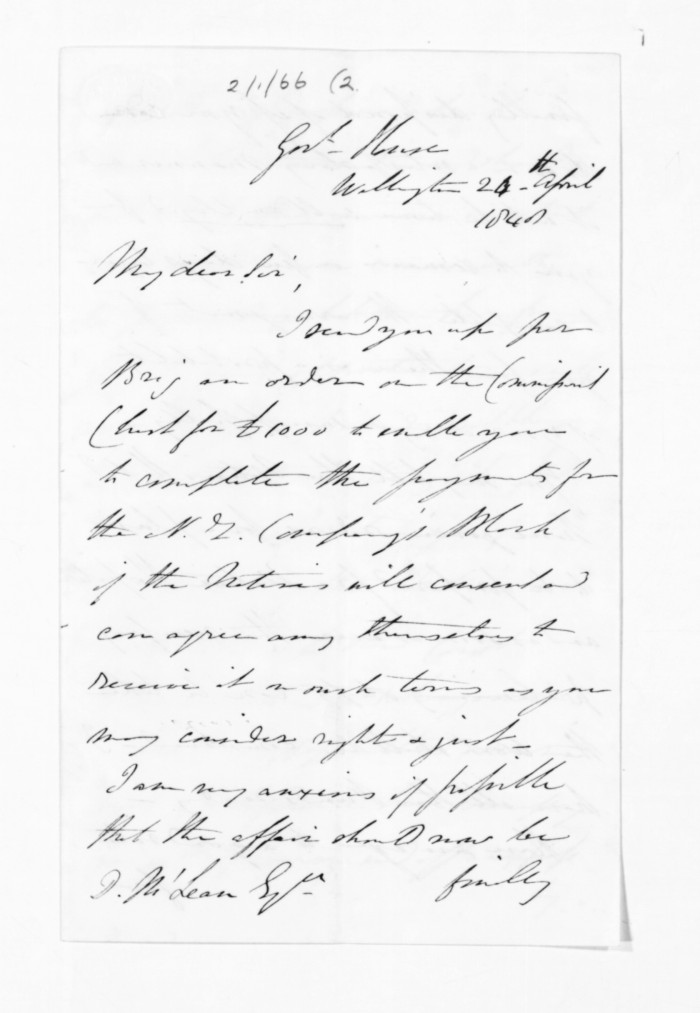 2/1/66 (2.
Govt House
Wellington 24th April
1848
My dear Sir,
I send you up per
Brig an order on the Commissariat
Chest for £1000 to enable you
to complete the payments for
the N. Z. Company's Block
if the Natives will consent and
can agree among themselves to
receive it on such terms as you
may consider right & just_
I am very anxious if possible
that the affair should now be
D. McLean Esqre finally